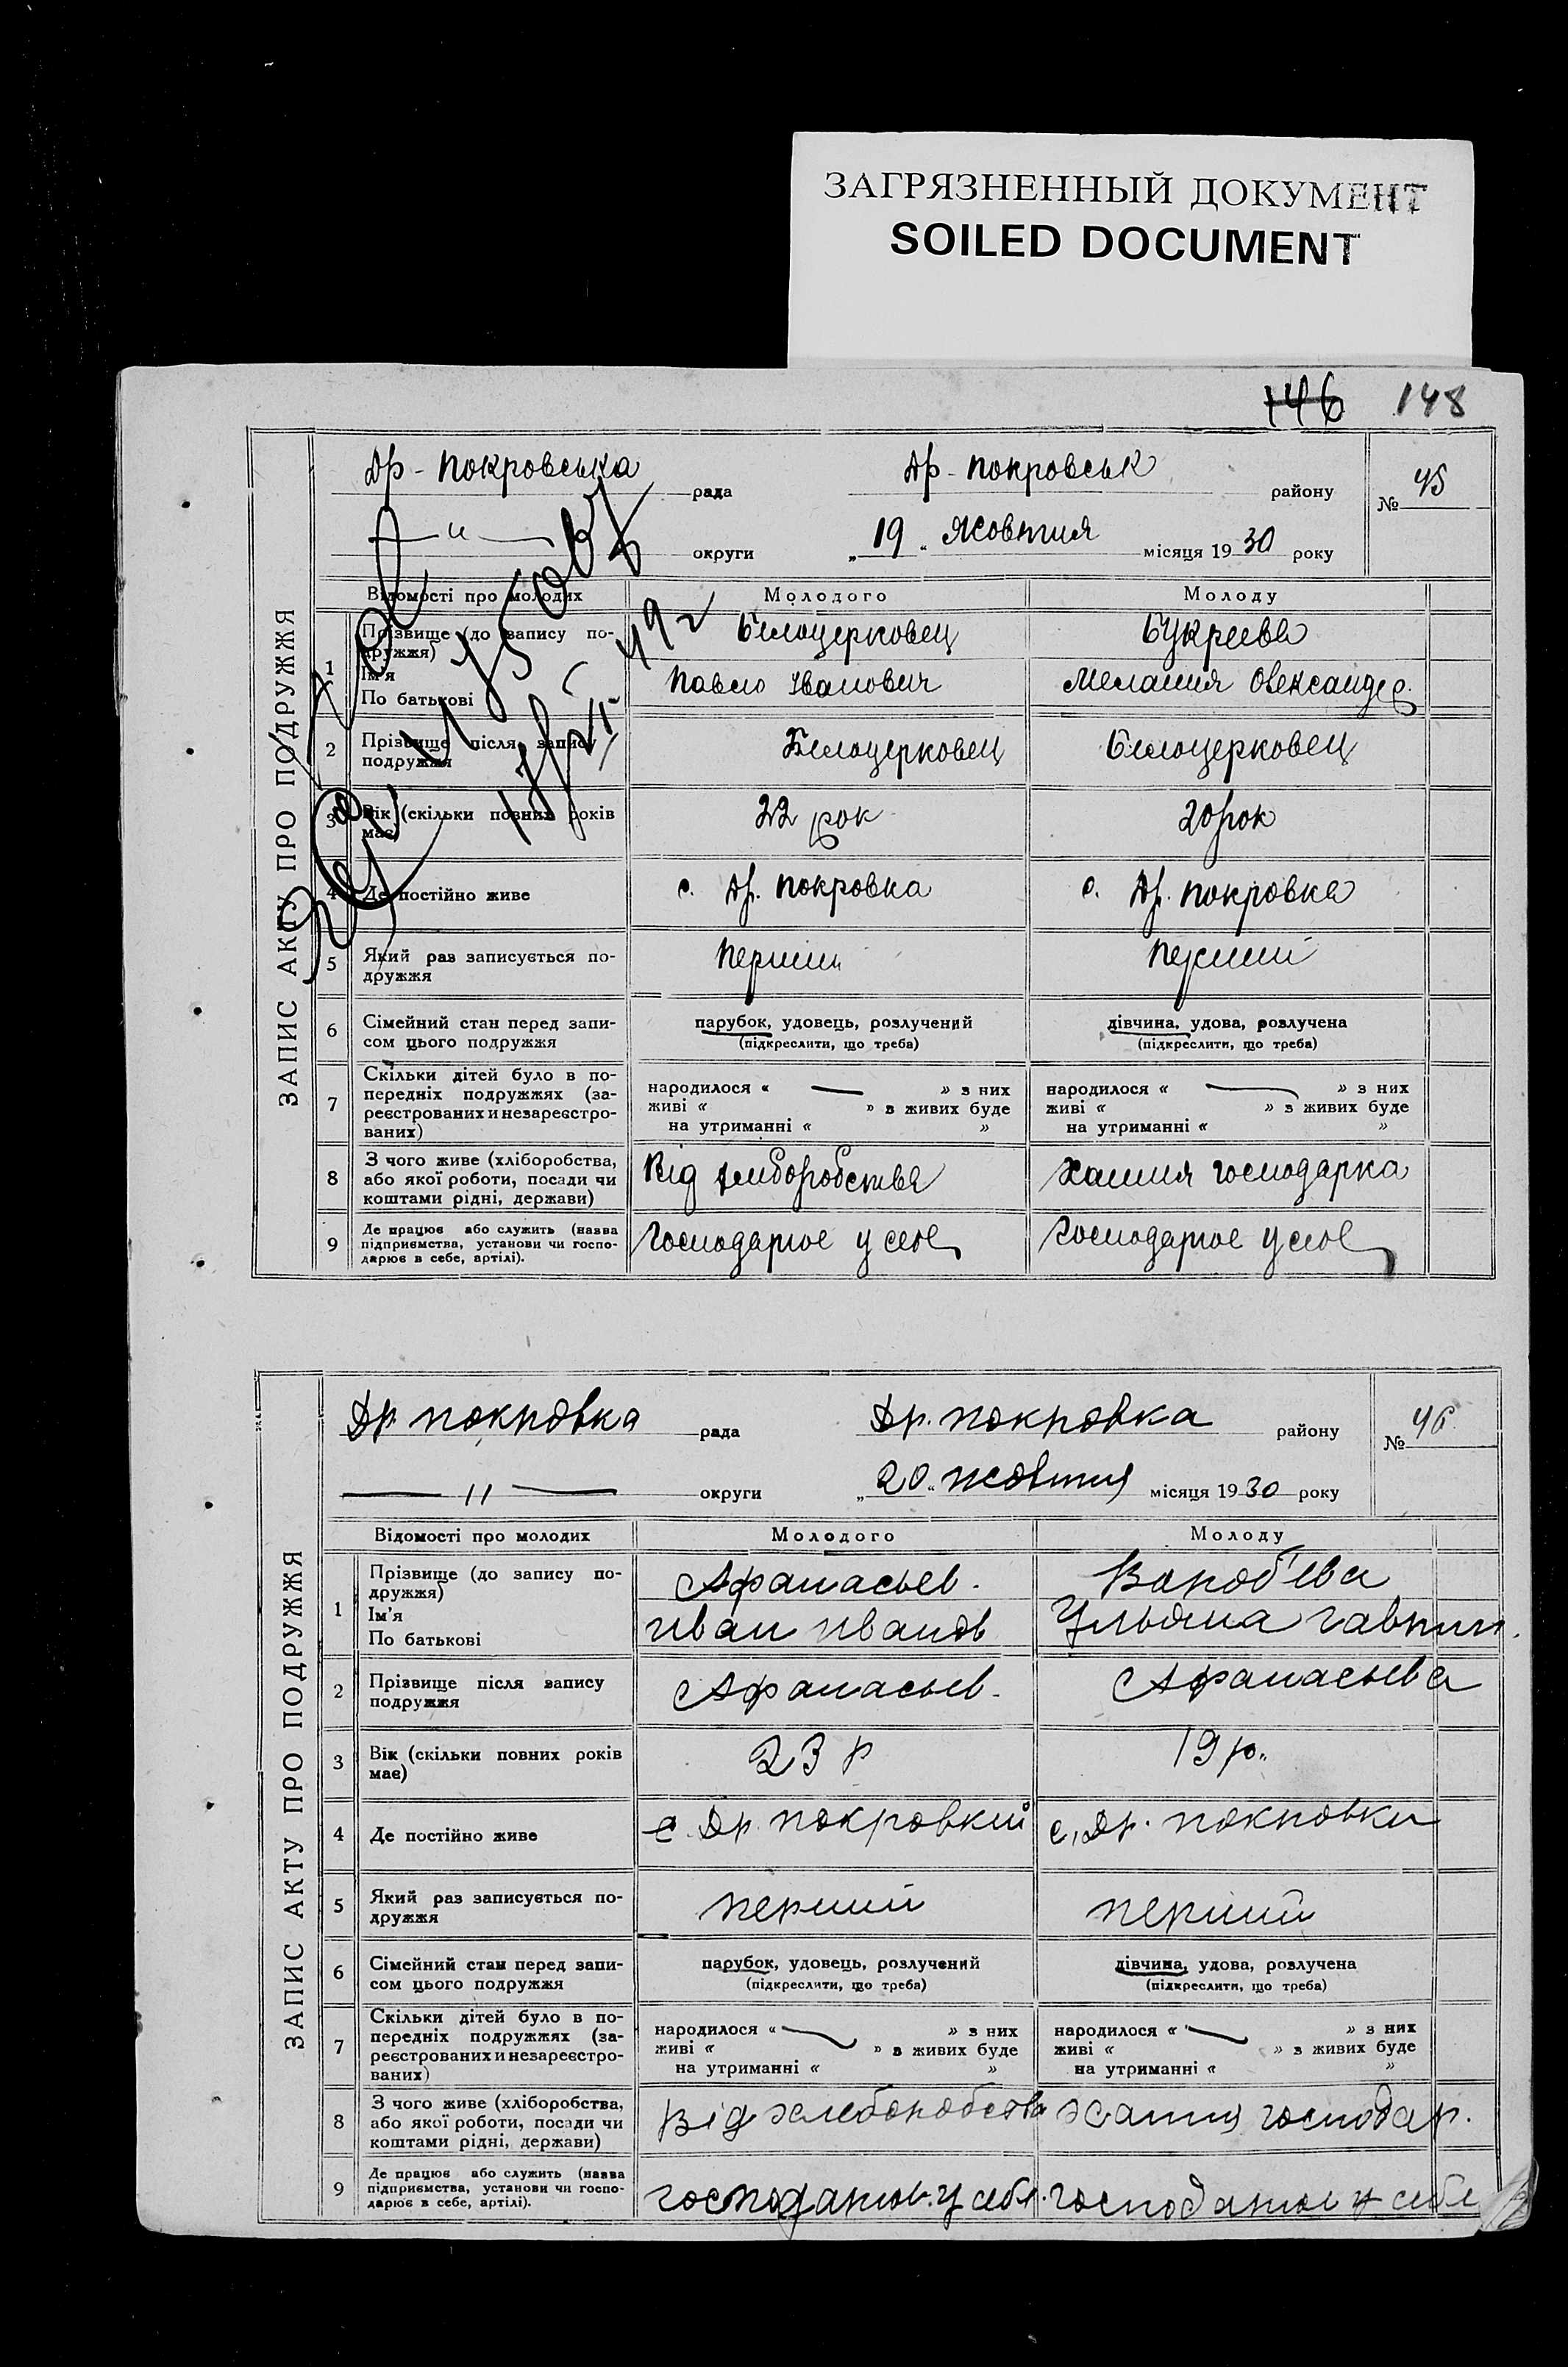 ЗАГРЯЗНЕННЫЙ ДОКУМЕНТ
SOILED DOCUMENT
146 148
ЗАПИС АКТУ ПРО ПОДРУЖЖЯ
Др-Покровська рада Др-Покровськ району № 45
— " — округи „19“ Жовтня місяця 1930 року
Відомості про молодих Молодого Молоду
1 Прізвище (до запису подружжя) Белоцерковец Букреева
Ім'я
По батькові Павло Іванович Мелания Олександер.
2 Прізвище після запису подружжя Белоцерковец Белоцерковец
3 Вік (скільки повних років має) 22 рок 20 рок
4 Де постійно живе с. Др. Покровка с. Др. Покровка
5 Який раз записується подружжя Перший Перший
6 Сімейний стан перед записом цього подружжя парубок, удовець, розлучений дівчина, удова, розлучена
(підкреслити, що треба) (підкреслити, що треба)
7 Скільки дітей було в попередніх подружжях (зареєстрованих и незареєстрованих) народилося « — » з них народилося « — » з них
живі « » з живих буде живі « » з живих буде
на утриманні « » на утриманні « »
8 З чого живе (хліборобства, або якої роботи, посади чи коштами рідні, держави) Від хлиборобства Хатня господарка
9 Де працює або служить (назва підприємства, установи чи господарює в себе, артілі). Господарює у себе Господарює у себе
ЗАПИС АКТУ ПРО ПОДРУЖЖЯ
Др. покровка рада Др. покровка району № 46
— " — округи „20“ жовтня місяця 1930 року
Відомості про молодих Молодого Молоду
1 Прізвище (до запису подружжя) Афанасьев. Вороб'ева
Ім'я
По батькові Иван Иванов Ульяна Гаврил.
2 Прізвище після запису подружжя Афанасьев. Афанасьева
3 Вік (скільки повних років має) 23 р 19 р.
4 Де постійно живе с. Др. покровкий с. Др. покровки
5 Який раз записується подружжя перший перший
6 Сімейний стан перед записом цього подружжя парубок, удовець, розлучений дівчина, удова, розлучена
(підкреслити, що треба) (підкреслити, що треба)
7 Скільки дітей було в попередніх подружжях (зареєстрованих и незареєстрованих) народилося « — » з них народилося « — » з них
живі « » з живих буде живі « » з живих буде
на утриманні « » на утриманні « »
8 З чого живе (хліборобства, або якої роботи, посади чи коштами рідні, держави) Від хлеборобства Хатня господар.
9 Де працює або служить (назва підприємства, установи чи господарює в себе, артілі). господарює у себе. господарює у себе